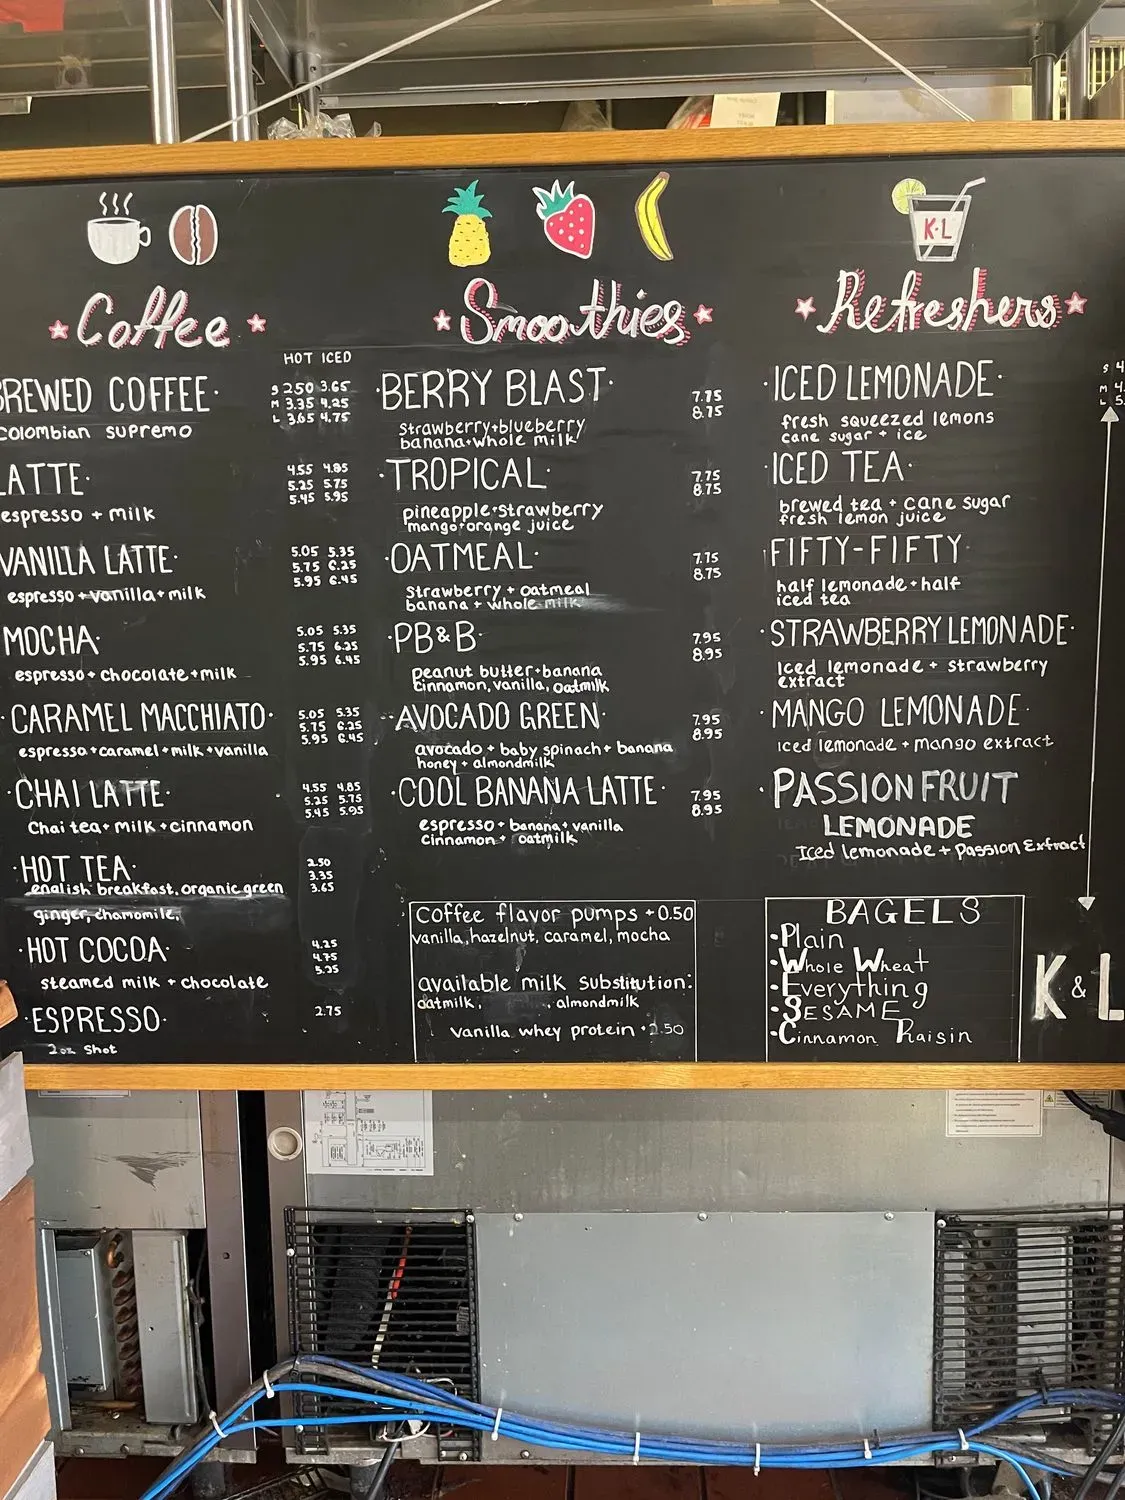 K·L
Coffee
HOT ICED
BREWED COFFEE·
S 2.50 3.65
M 3.35 4.25
L 3.65 4.75
colombian supremo
LATTE·
4.55 4.85
5.25 5.75
5.45 5.95
espresso + milk
VANILLA LATTE·
5.05 5.35
5.75 6.25
5.95 6.45
espresso + vanilla + milk
MOCHA·
5.05 5.35
5.75 6.25
5.95 6.45
espresso + chocolate + milk
·CARAMEL MACCHIATO·
5.05 5.35
5.75 6.25
5.95 6.45
espresso + caramel + milk + vanilla
·CHAI LATTE·
4.55 4.85
5.25 5.75
5.45 5.95
Chai tea + milk + cinnamon
·HOT TEA·
2.50
3.35
3.65
english breakfast, organic green
ginger, chamomile,
·HOT COCOA·
4.25
4.75
5.25
steamed milk + chocolate
·ESPRESSO·
2.75
2oz Shot
Smoothies
·BERRY BLAST·
7.75
8.75
strawberry + blueberry
banana + whole milk
·TROPICAL·
7.75
8.75
pineapple + strawberry
mango + orange juice
·OATMEAL·
7.75
8.75
strawberry + oatmeal
banana + whole milk
·PB&B·
7.95
8.95
peanut butter + banana
cinnamon, vanilla, oatmilk
·AVOCADO GREEN·
7.95
8.95
avocado + baby spinach + banana
honey + almondmilk
·COOL BANANA LATTE·
7.95
8.95
espresso + banana + vanilla
cinnamon + oatmilk
Coffee flavor pumps +0.50
vanilla, hazelnut, caramel, mocha
available milk substitution:
oatmilk, , almondmilk
vanilla whey protein +2.50
Refreshers
·ICED LEMONADE·
fresh squeezed lemons
cane sugar + ice
·ICED TEA·
brewed tea + cane sugar
fresh lemon juice
·FIFTY-FIFTY
half lemonade + half
iced tea
·STRAWBERRY LEMONADE·
Iced lemonade + strawberry
extract
·MANGO LEMONADE·
iced lemonade + mango extract
·PASSION FRUIT
LEMONADE
Iced lemonade + Passion Extract
S 4
M 4.
L 5.
BAGELS
·Plain
·Whole Wheat
·Everything
·SESAME
·Cinnamon Raisin
K & L